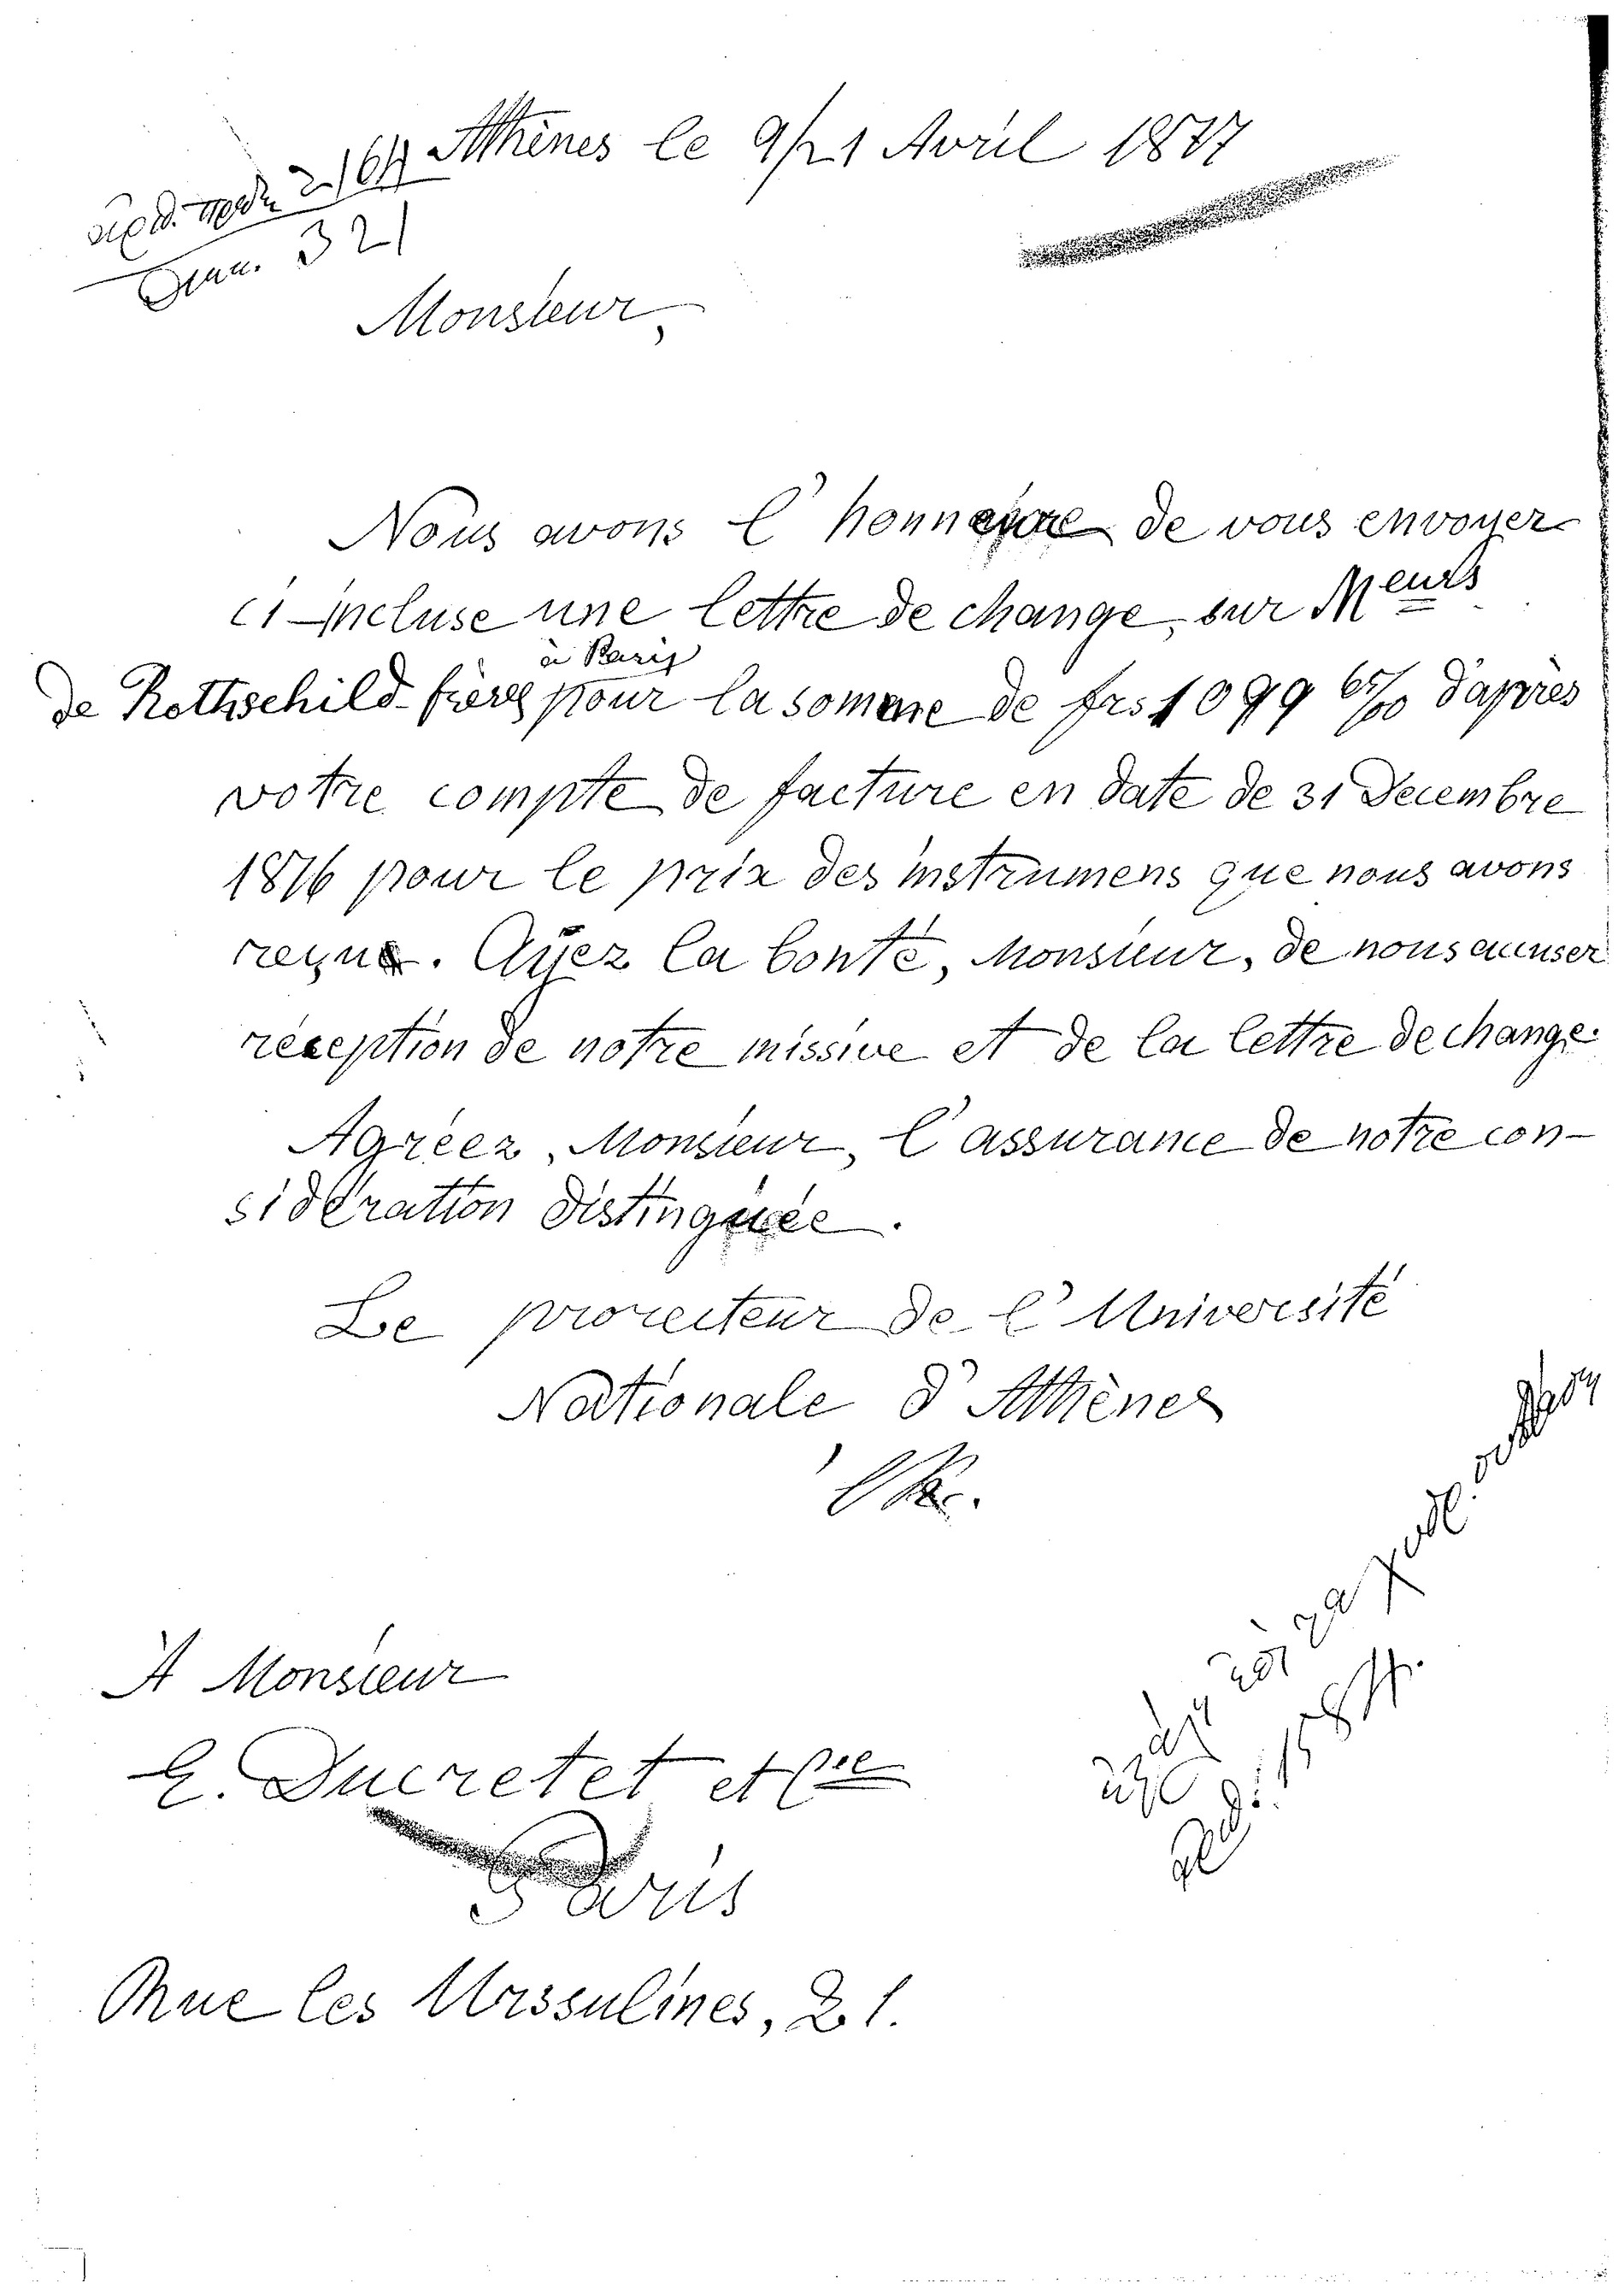 Athènes le 9/21 Avril 1877
2164
321
Monsieur,
Nous avons l'honneur de vous envoyer
ci-incluse une lettre de change, sur Meurs
à Paris
de Rothschild frères pour la somme de frs 1099 65/00 d'après
votre compte de facture en date de 31 Decembre
1876 pour le prix des instrumens que nous avons
reçus. Ayez la bonté, Monsieur, de nous accuser
réception de notre missive et de la lettre de change.
Agréez, Monsieur, l'assurance de notre con-
sidération distinguée.
Le prorecteur de l'Université
Nationale d'Athènes
A Monsieur
E. Ducretet et Cie
Paris
Rue les Urssulines, 21.